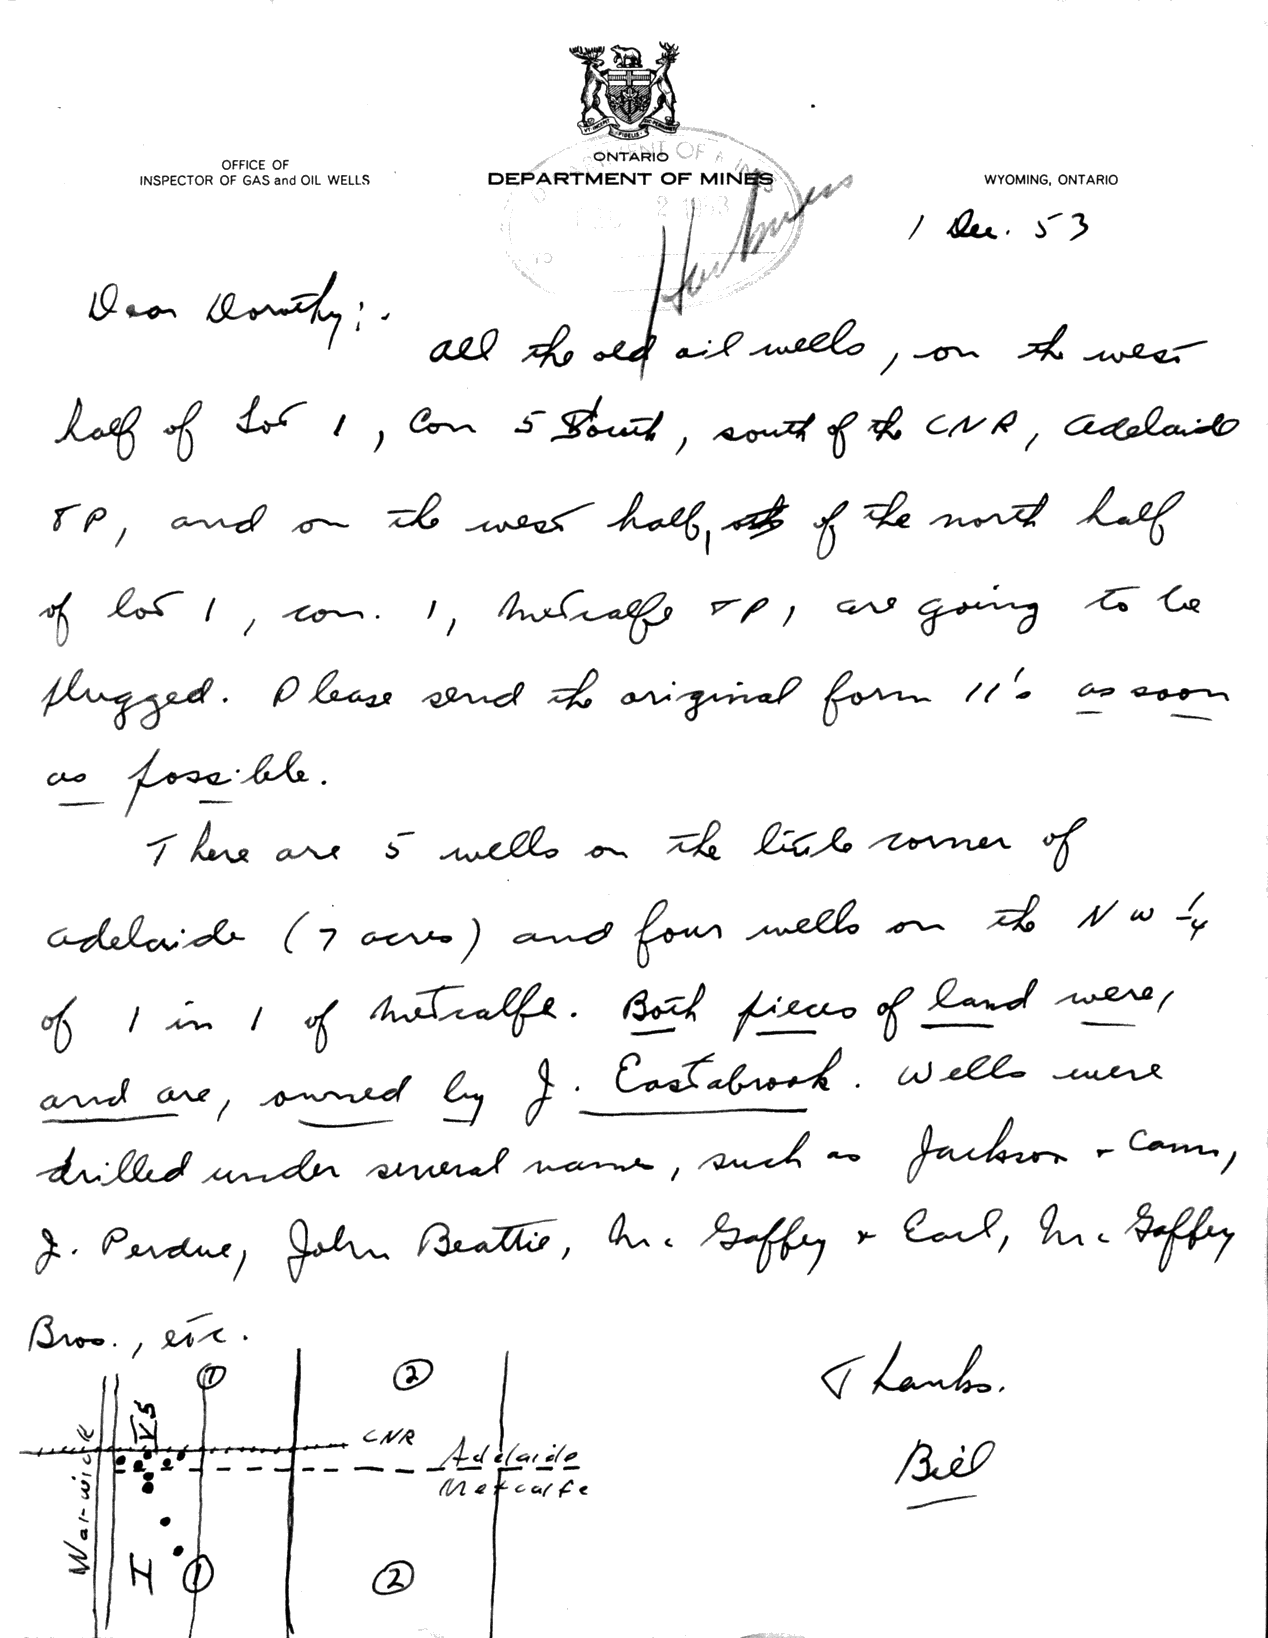 UT INCEPIT FIDELIS SIC PERMANET
ONTARIO
OFFICE OF
INSPECTOR OF GAS and OIL WELLS
DEPARTMENT OF MINES
WYOMING, ONTARIO
DEPARTMENT OF MINES
DEC 2 1953
1 Dec. 53
Dear Dorothy:-
All the old oil wells, on the west
half of Lot 1, Con 5 South, south of the CNR, Adelaide
TP, and on the west half, of the north half
of lot 1, con. 1, Metcalfe TP, are going to be
plugged. Please send the original form 11's as soon
as possible.
There are 5 wells on the little corner of
Adelaide (7 acres) and four wells on the NW 1/4
of 1 in 1 of Metcalfe. Both pieces of land were,
and are, owned by J. Eastabrook. Wells were
drilled under several names, such as Jackson + Cam,
J. Perdue, John Beattie, Mc Gaffey + Earl, Mc Gaffey
Bros., etc.
Thanks.
Bill
1 2
V S
CNR
Adelaide
Metcalfe
Warwick
I 1 2